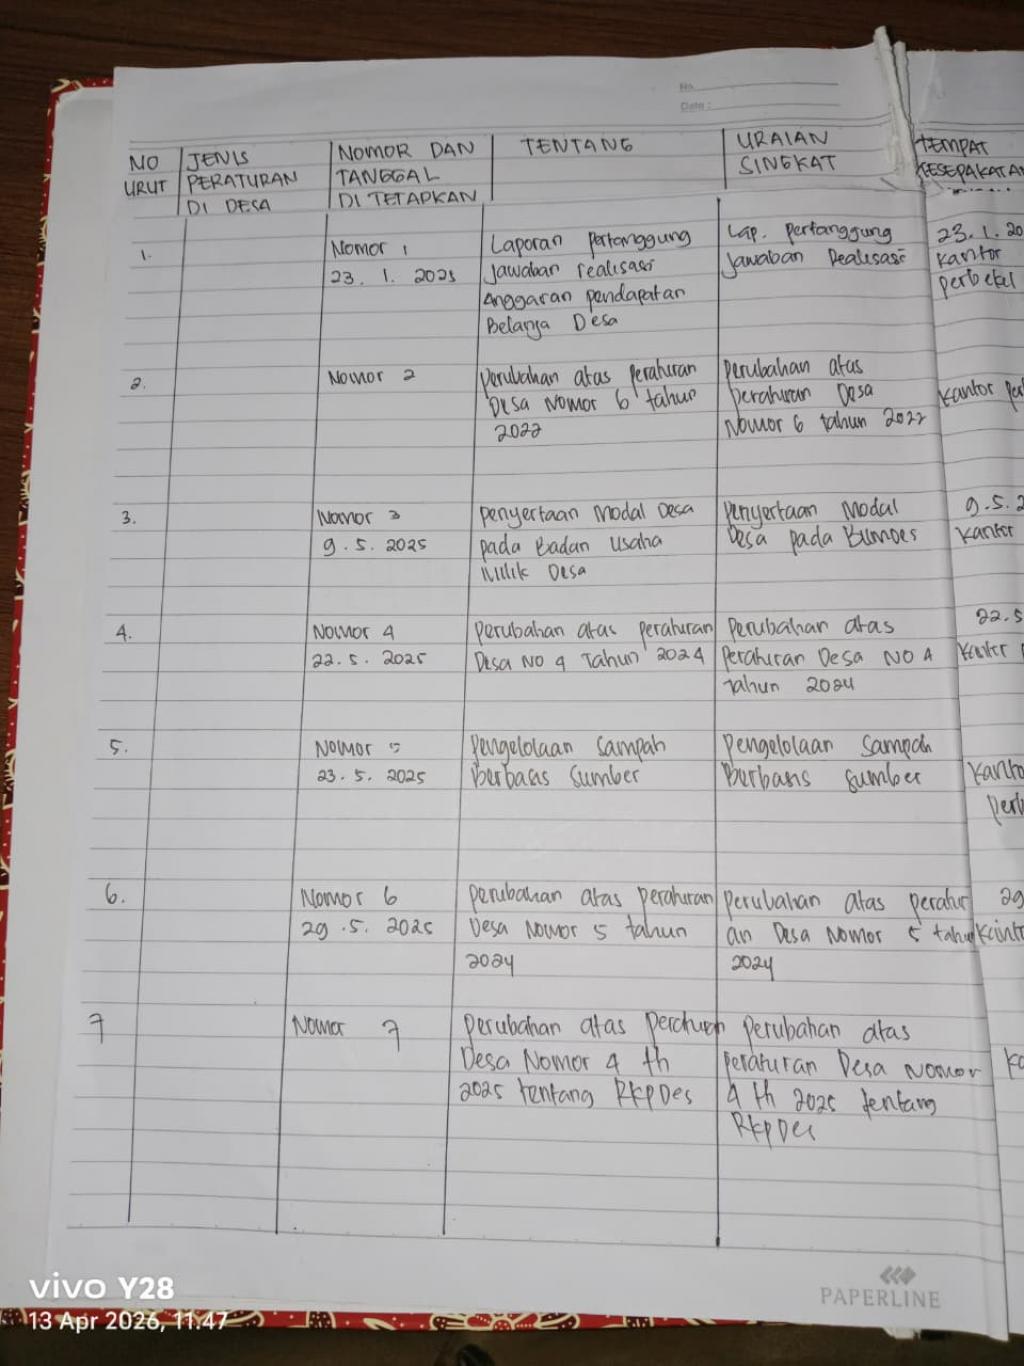 No.
Date :
NO URUT
JENIS PERATURAN DI DESA
NOMOR DAN TANGGAL DI TETAPKAN
TENTANG
URAIAN SINGKAT
TEMPAT KESEPAKATAN
1.
Nomor 1
23. 1. 2025
Laporan pertanggung
jawaban realisasi
Anggaran pendapatan
Belanja Desa
Lap. pertanggung
jawaban Realisasi
23.1.20
kantor
perbekel
2.
Nomor 2
perubahan atas peraturan
Desa Nomor 6 tahun
2022
perubahan atas
peraturan Desa
Nomor 6 tahun 2022
kantor per
3.
Nomor 3
9.5.2025
penyertaan Modal Desa
pada Badan Usaha
Milik Desa
penyertaan Modal
Desa pada Bumdes
9.5.2
kantor
4.
Nomor 4
22.5.2025
perubahan atas peraturan
Desa NO 4 Tahun 2024
perubahan atas
Peraturan Desa NO 4
tahun 2024
22.5
kantor
5.
Nomor 5
23.5.2025
pengelolaan sampah
Berbasis Sumber
Pengelolaan Sampah
Berbasis sumber
kanto
perb
6.
Nomor 6
29.5.2025
perubahan atas peraturan
Desa Nomor 5 tahun
2024
perubahan atas peratur
an Desa Nomor 5 tahun
2024
29
kantr
7
Nomor 7
perubahan atas peraturan
Desa Nomor 4 th
2025 tentang RKPDes
perubahan atas
peraturan Desa Nomor
4 th 2025 tentang
RKPDes
ka
PAPERLINE
vivo Y28
13 Apr 2026, 11.47